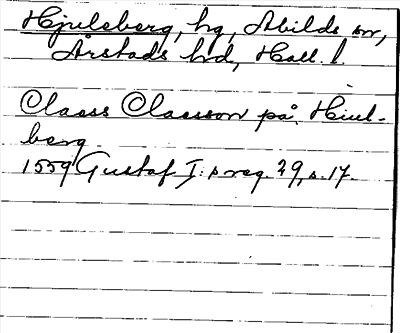 Hjuleberg, hg, Abilds sn,
Årstads hd, Hall. l.
Claess Claesson på Hiul-
berg.
1559 Gustaf I:s reg. 29, s. 17.